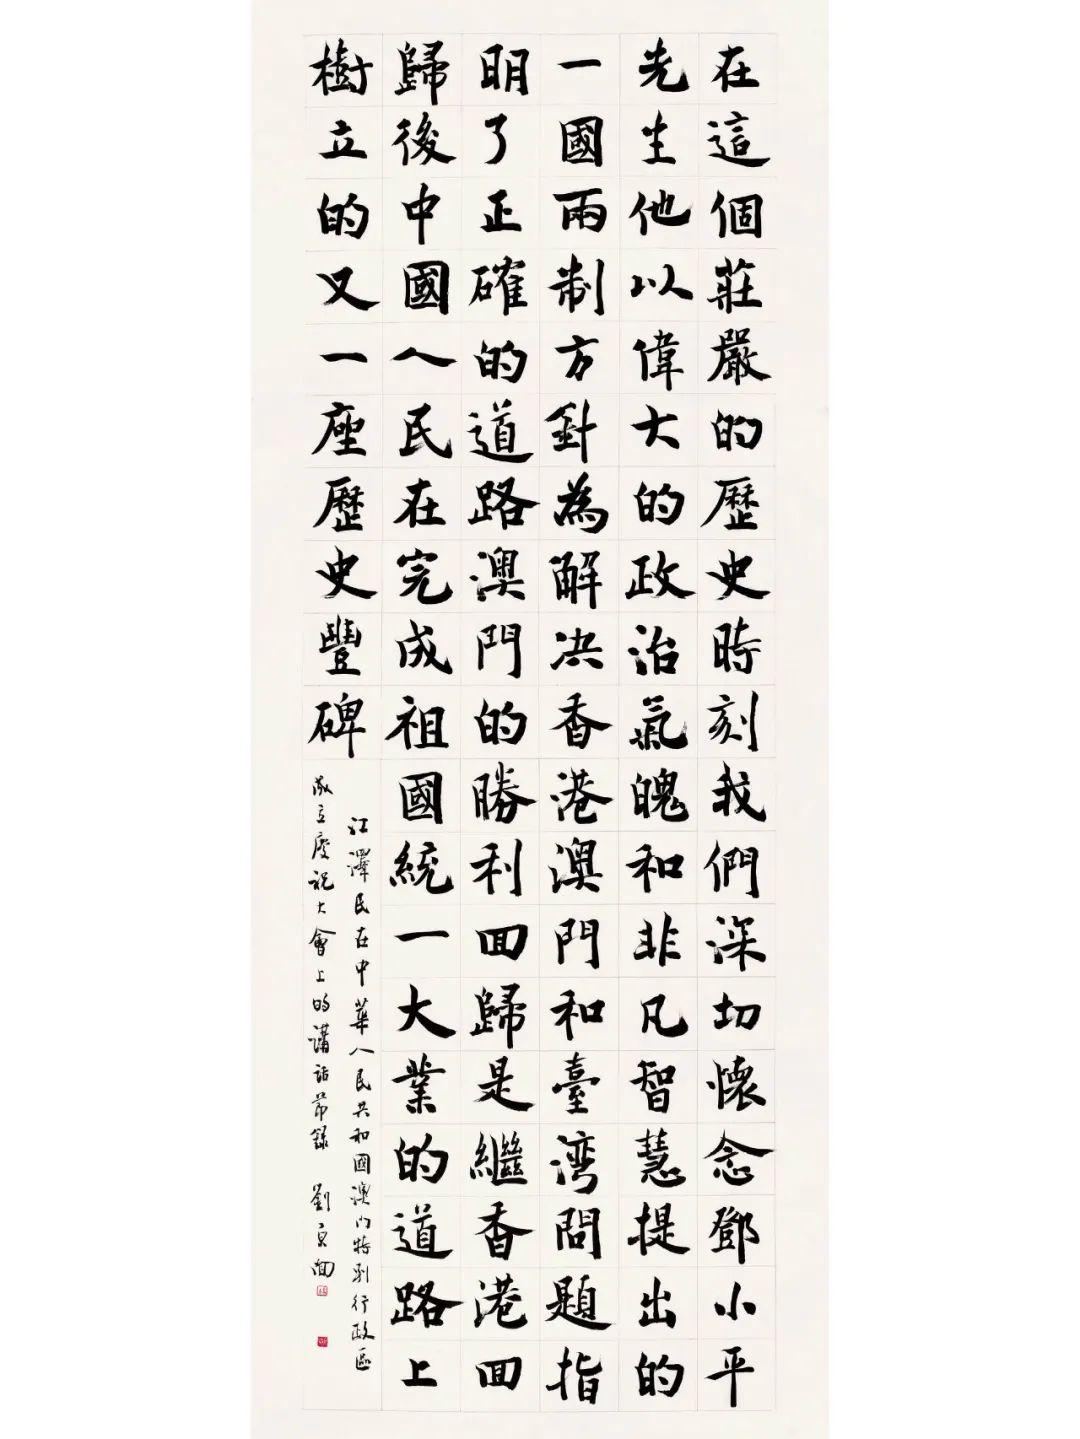 在這個莊嚴的歷史時刻我們深切懷念鄧小平
先生他以偉大的政治氣魄和非凡智慧提出的
一國兩制方針為解決香港澳門和臺灣問題指
明了正確的道路澳門的勝利回歸是繼香港回
歸後中國人民在完成祖國統一大業的道路上
樹立的又一座歷史豐碑
江澤民在中華人民共和國澳门特別行政區
成立慶祝大會上的講話節錄 劉